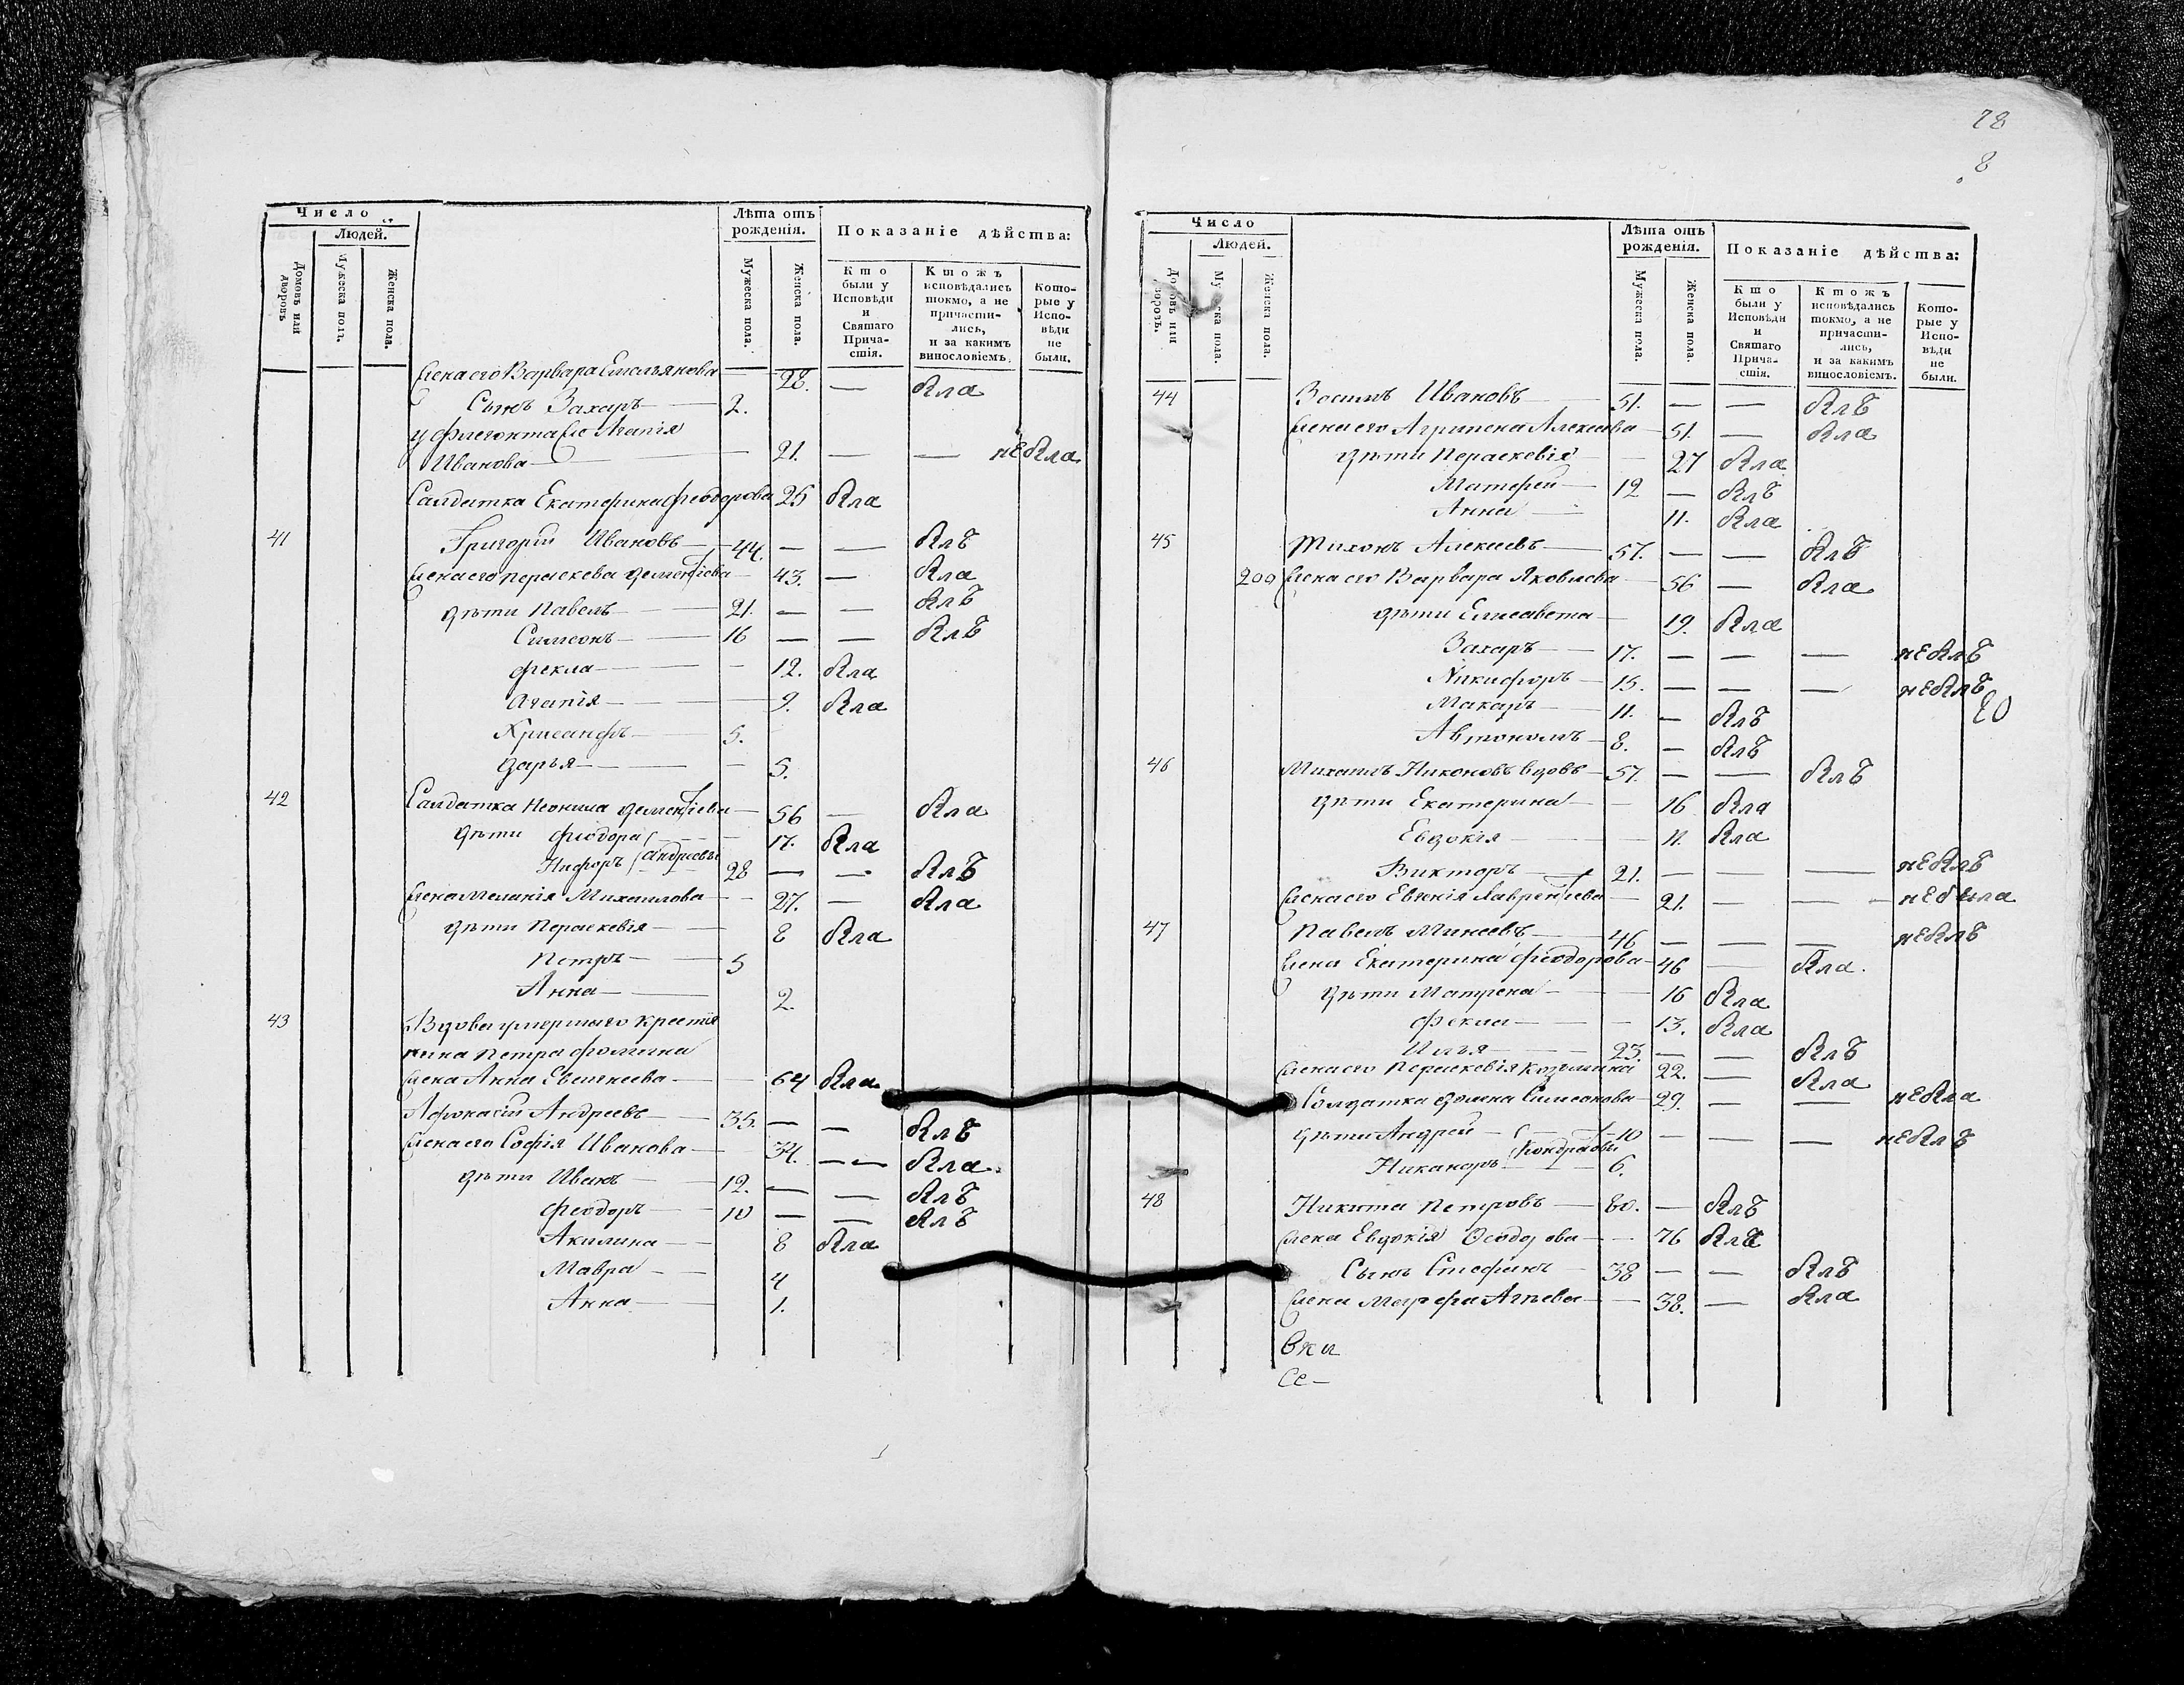 Число
Людей.
Домовъ или дворовъ
Мужеска пола.
Женска пола.
Лѣта отъ рожденія.
Мужеска пола.
Женска пола.
Показаніе дѣйства:
Кто были у Исповѣди и Святаго Прича-стія.
Ктожъ исповѣдались токмо, а не причасти-лись, и за какимъ винословіемъ.
Кото-рые у Испо-вѣди не были.
Жена его Варвара Емельянова 28. — была
Сынъ Захаръ 2.
у Флегонта Агапія
Иванова 21. — — не была
Салдатка Екатерина Феодорова 25 была
41 Григорій Ивановъ 44. — — былъ
Жена его Пераскева Дементіева 43. — была
дѣти Павелъ 21. — — былъ
Симеонъ 16 — — былъ
Фекла 12. была
Агапія 9. была
Хрисанфъ 5.
Дарья 5.
42 Салдатка Неонила Дементіева 56 — была
дѣти Феодора 17. была
Андреевы 28 — — былъ
Жена Меланія Михаилова 27. — была
дѣти Пераскевія 8 была
Петръ 5
Анна 2.
43 Вдова умершаго крестья
нина Петра Фомина
жена Анна Евсигнеева 64 была
Афонасій Андреевъ 35. — — былъ
Жена его Софія Иванова 34. — — была
дѣти Иванъ 12. — — былъ
Феодоръ 10 — — былъ
Акилина 8 была
Мавра 4
Анна 1.
78
8
Число
Людей.
Домовъ или дворовъ.
Мужеска пола.
Женска пола.
Лѣта отъ рожденія.
Мужеска пола.
Женска пола.
Показаніе дѣйства:
Кто были у Исповѣди и Святаго Прича-стія.
Ктожъ исповѣдались токмо, а не причасти-лись, и за какимъ винословіемъ.
Кото-рые у Испо-вѣди не были.
44 Зосимъ Ивановъ 51. — — былъ
Жена его Агрипена Алексеева 51. — была
дѣти Пераскевія 27 была
Матфей 12 — былъ
Анна 11. была
45 Тихонъ Алексеевъ 57. — — былъ
209 Жена его Варвара Яковлева 56 — была
дѣти Елисавета 19. была
Захаръ 17. — — — не былъ
Никифоръ 15. — — — не былъ
Макаръ 11. — былъ
Автономъ 8. — былъ
46 Михаилъ Никоновъ вдовъ 57. — — былъ
дѣти Екатерина 16 была
Евдокія 11. была
Викторъ 21. — — — не былъ
Жена его Евгенія Лаврентіева 21. — — не была
47 Павелъ Минеевъ 46 — — — не былъ
Жена Екатерина Феодорова 46 — была.
дѣти Матрена 16 была
Фекла 13. была
Илья 23. — — былъ
Жена его Пераскевія Козьмина 22. — была
Солдатка Домна Симеонова 29. — — не была
дѣти Андрей 10 — — — не былъ
Никаноръ Кондратьевы 6.
48 Никита Петровъ 80. — былъ
Жена Евдокія Ѳеодорова 76 была
Сынъ Стефанъ 38 — — былъ
Жена Марфа Агѣева 38. — была
Се —